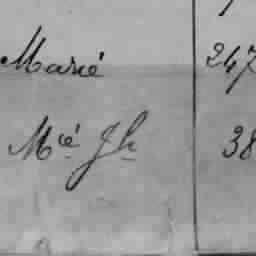 Marié 247
Mié Jh 38